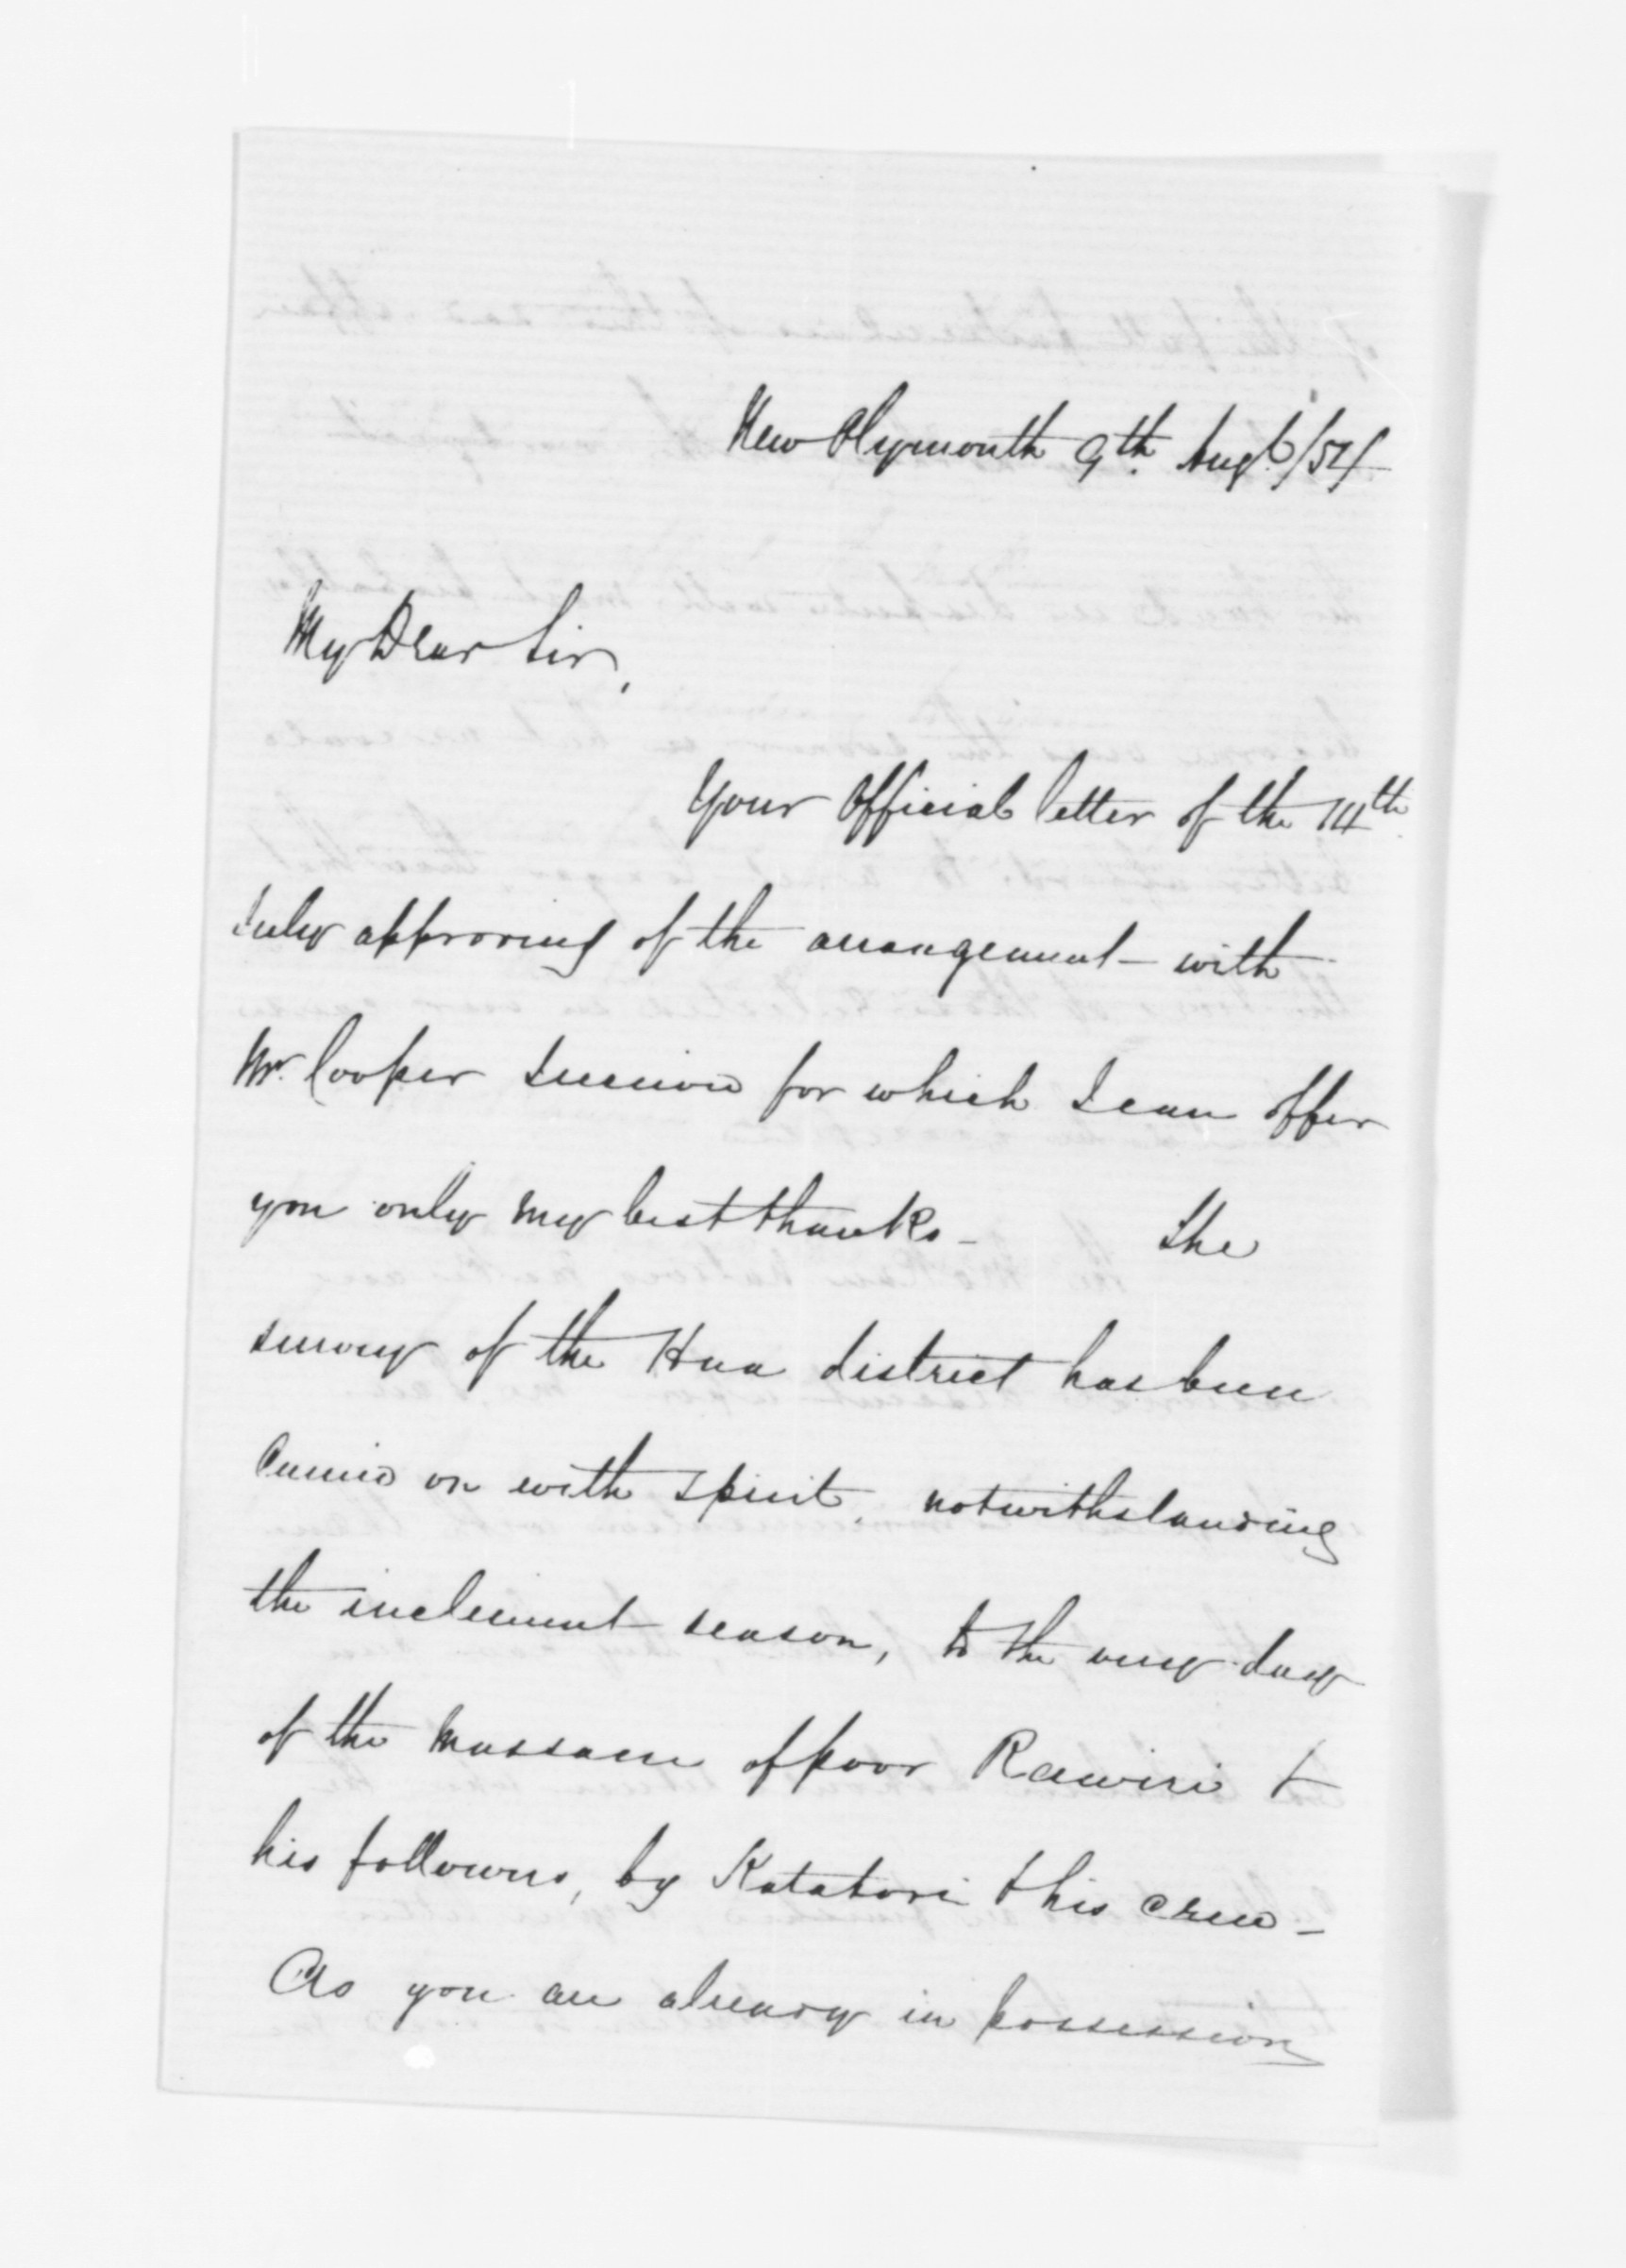 New Plymouth 9th Augt/54
My Dear Sir,
Your Official letter of the 14th
July approving of the arrangement with
Mr. Cooper I received for which I can offer
you only my best thanks - The
survey of the Hua district has been
Carried on with spirit, notwithstanding
the inclement season, to the very day
of the massacre of poor Rawiri &
his followers, by Katatori & his crew -
As you are already in possession